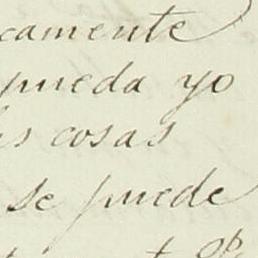 camente
pueda yo
s cosas
se puede